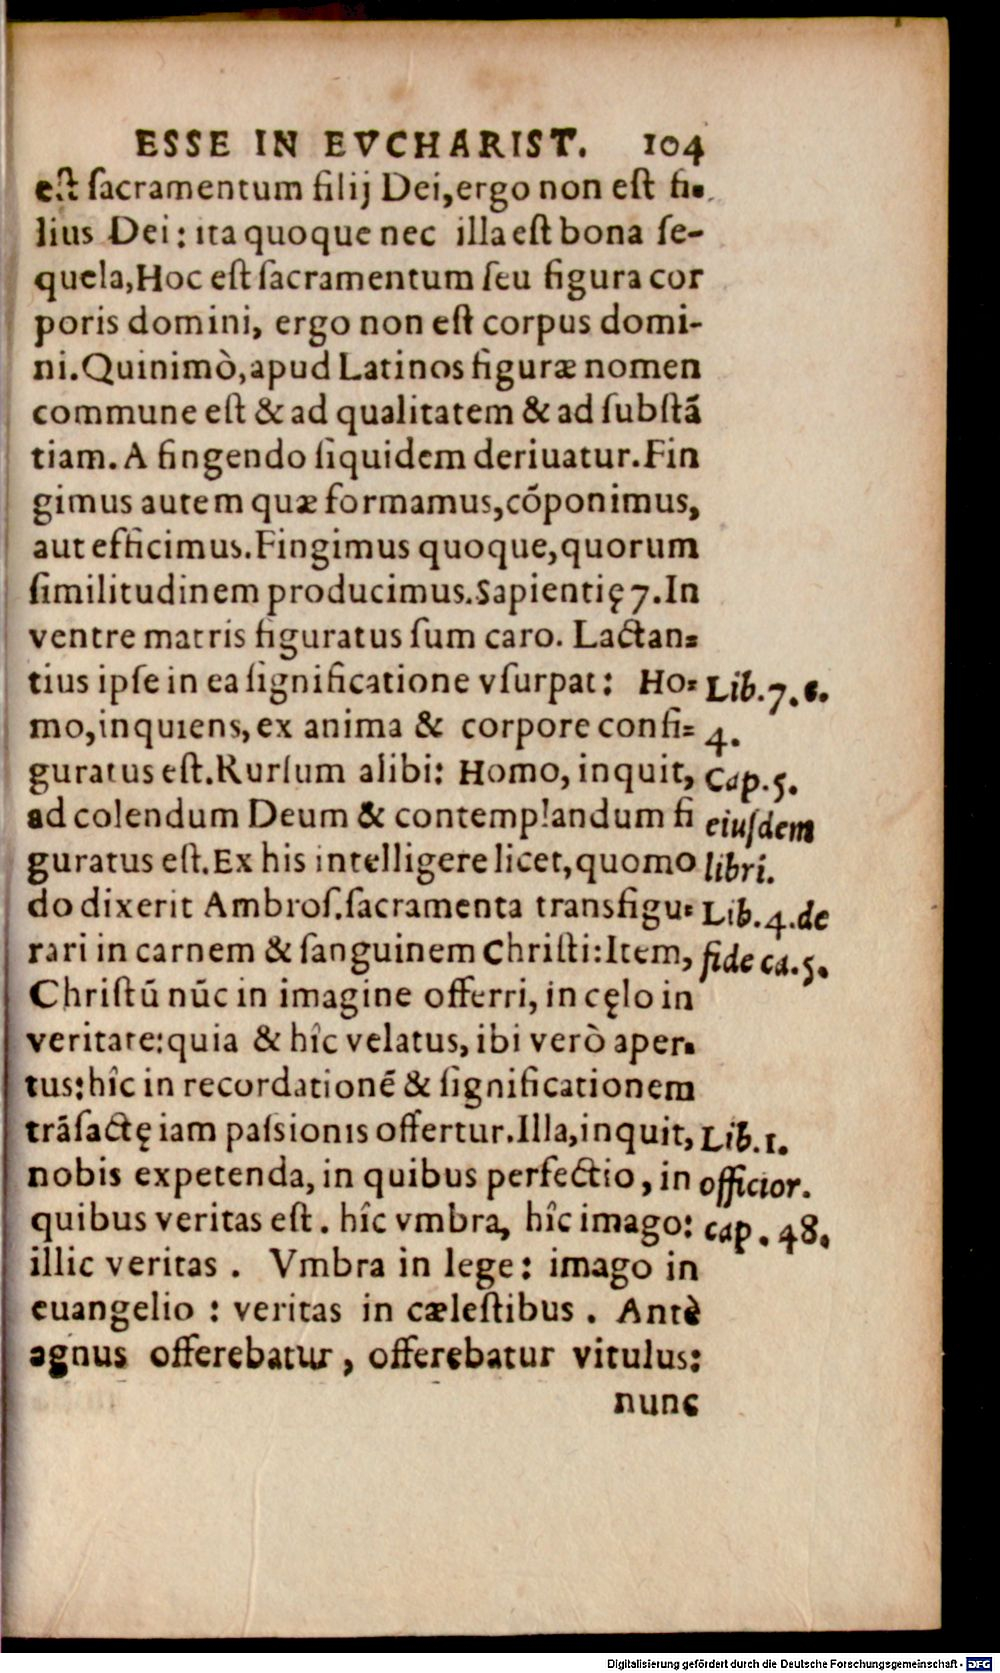 ESSE IN EVCHARIST. 104
est sacramentum filij Dei, ergo non est fi-
lius Dei: ita quoque nec illa est bona se-
quela, Hoc est sacramentum seu figura cor
poris domini, ergo non est corpus domi-
ni. Quinimò, apud Latinos figuræ nomen
commune est & ad qualitatem & ad substã
tiam. A fingendo siquidem deriuatur. Fin
gimus autem quæ formamus, cõponimus,
aut efficimus. Fingimus quoque, quorum
similitudinem producimus. Sapientię 7. In
ventre matris figuratus sum caro. Lactan-
tius ipse in ea significatione vsurpat: Ho- Lib. 7. c.
mo, inquiens, ex anima & corpore confi- 4.
guratus est. Rursum alibi: Homo, inquit, Cap. 5.
ad colendum Deum & contemplandum fi eiusdem
guratus est. Ex his intelligere licet, quomo libri.
do dixerit Ambros. sacramenta transfigu- Lib. 4. de
rari in carnem & sanguinem Christi: Item, fide ca. 5.
Christũ nũc in imagine offerri, in cęlo in
veritate: quia & hîc velatus, ibi verò aper-
tus: hîc in recordationẽ & significationem
trãsactę iam passionis offertur. Illa, inquit, Lib. 1.
nobis expetenda, in quibus perfectio, in officior.
quibus veritas est. hîc vmbra, hîc imago: cap. 48.
illic veritas. Vmbra in lege: imago in
euangelio: veritas in cælestibus. Antè
agnus offerebatur, offerebatur vitulus:
nunc
Digitalisierung gefördert durch die Deutsche Forschungsgemeinschaft - DFG